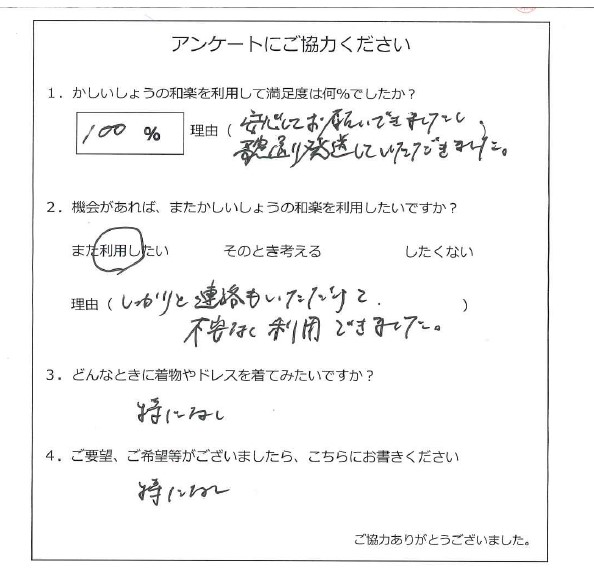 アンケートにご協力ください
1．かしいしょうの和楽を利用して満足度は何%でしたか？
100 % 理由（ 安心してお願いできましたし、
発送していただきました。
2．機会があれば、またかしいしょうの和楽を利用したいですか？
また利用したい そのとき考える したくない
理由（ しっかりと連絡もいただけて、 ）
不安なく利用できました。
3．どんなときに着物やドレスを着てみたいですか？
特になし
4．ご要望、ご希望等がございましたら、こちらにお書きください
特になし
ご協力ありがとうございました。